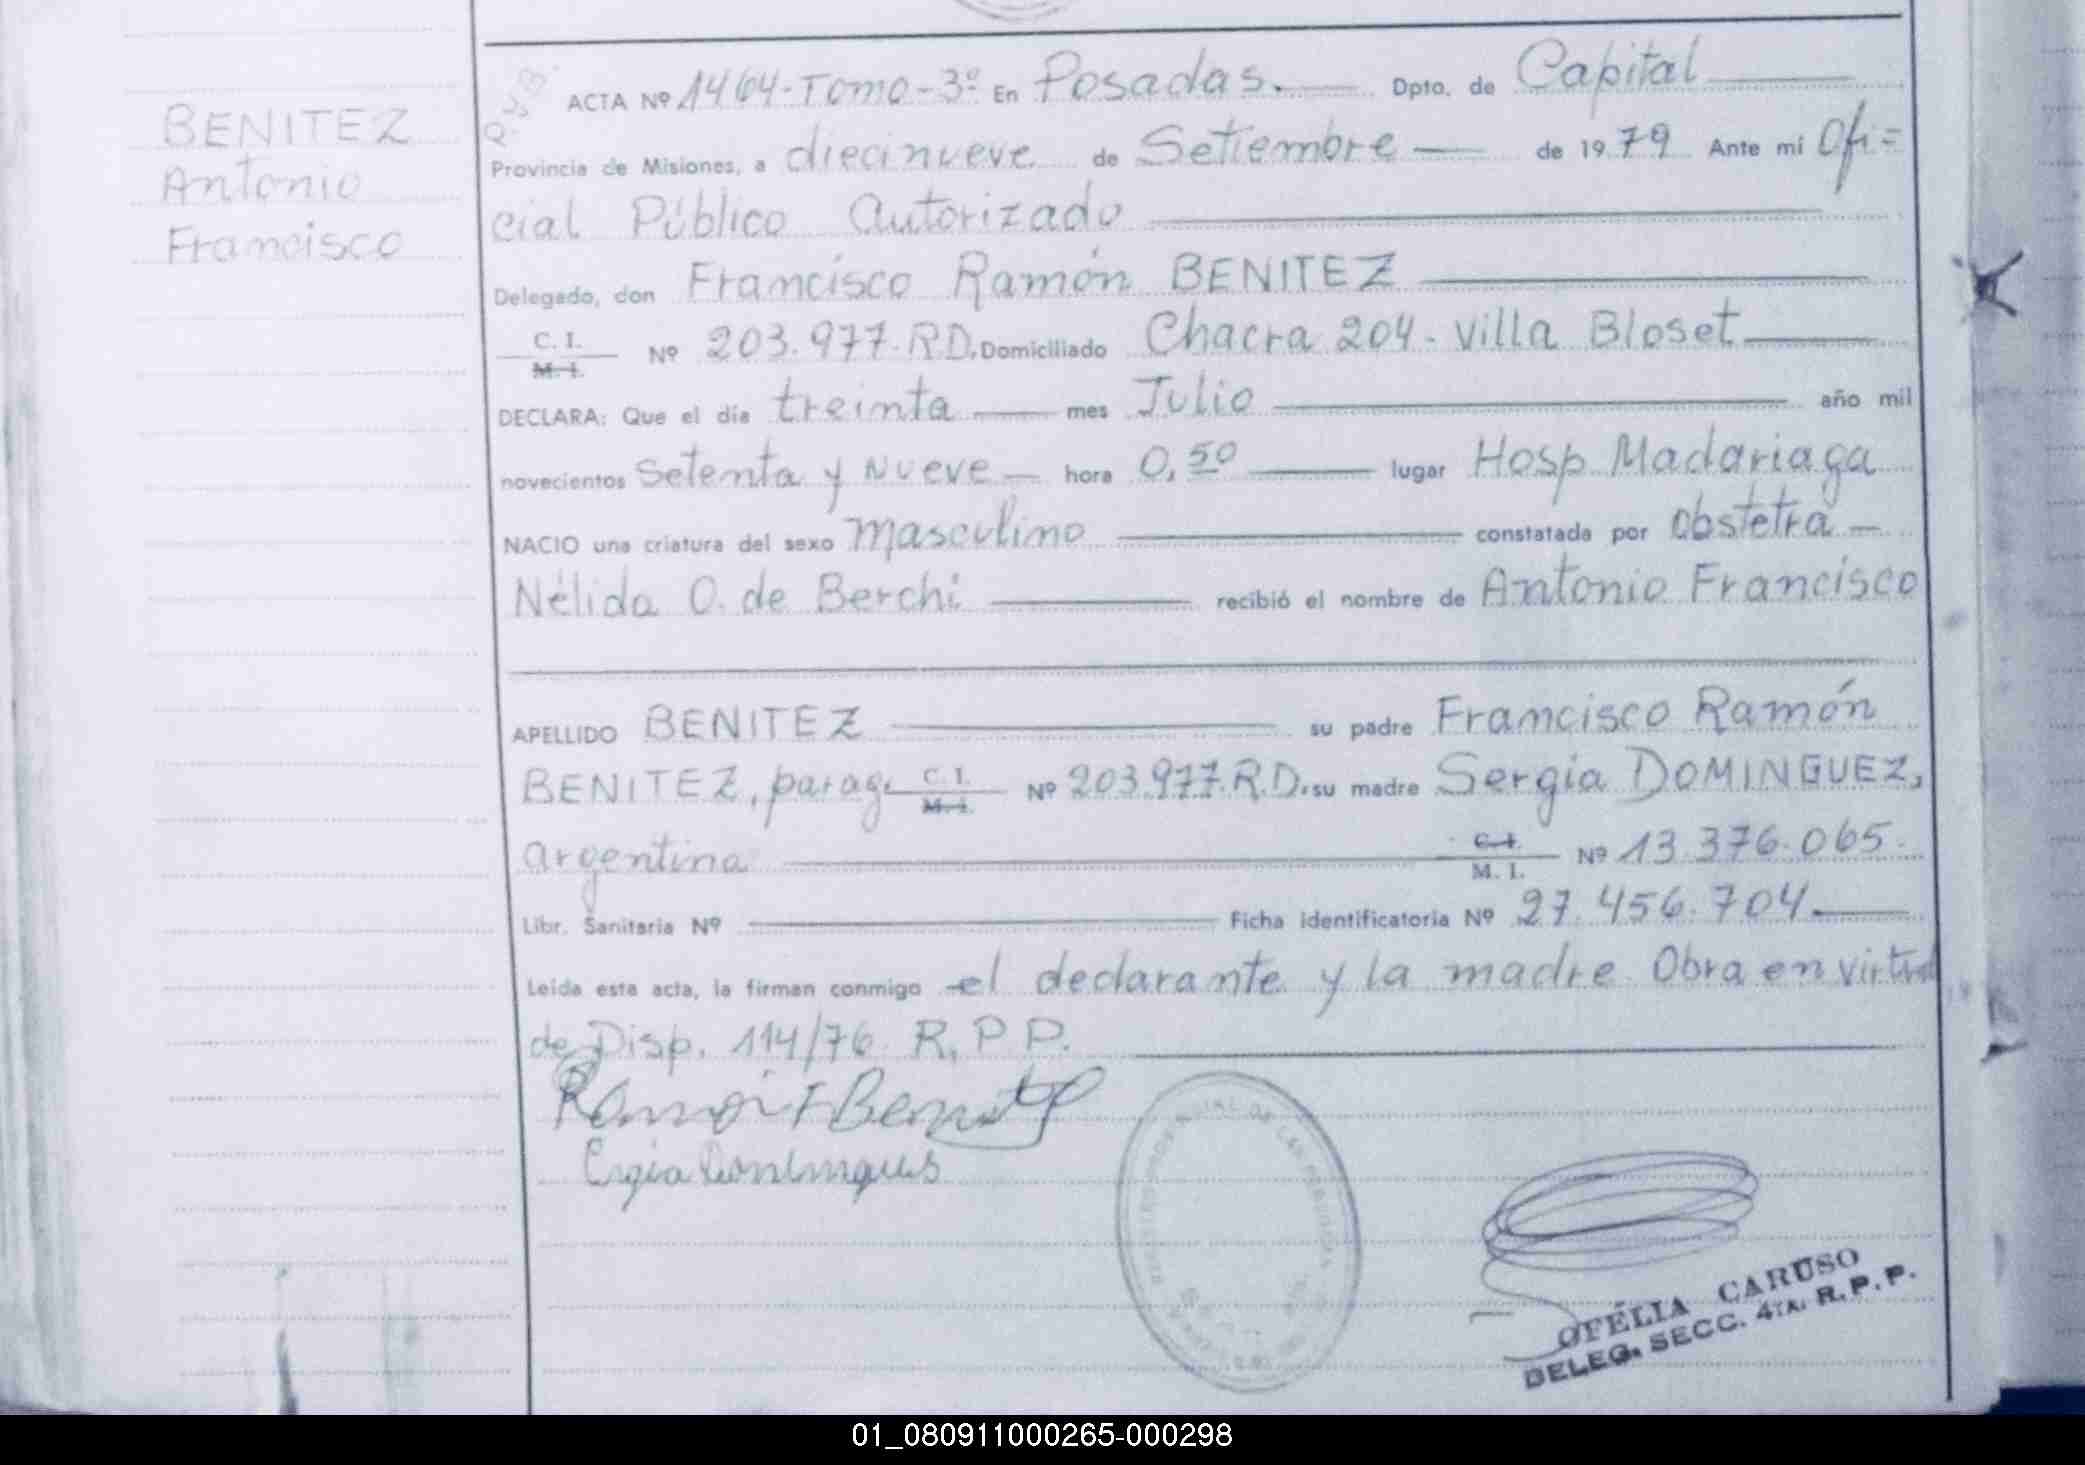 BENITEZ
Antonio
Francisco
ACTA Nº 1464-Tomo-3º En Posadas. Dpto. de Capital
Provincia de Misiones, a diecinueve de Setiembre de 1979 Ante mí Ofi=
cial Público Autorizado
Delegado, don Francisco Ramón BENITEZ
C. I.
M. I. Nº 203.977.R.D. Domiciliado Chacra 204. Villa Bloset
DECLARA: Que el día treinta mes Julio año mil
novecientos setenta y nueve hora 0,50 lugar Hosp Madariaga
NACIO una criatura del sexo masculino constatada por obstetra
Nélida O. de Berchi recibió el nombre de Antonio Francisco
APELLIDO BENITEZ su padre Francisco Ramón
BENITEZ, parag. C. I. M. I. Nº 203.977.R.D. su madre Sergia DOMINGUEZ,
argentina C. I. M. I. Nº 13.376.065.
Libr. Sanitaria Nº Ficha identificatoria Nº 27.456.704
Leída esta acta, la firman conmigo el declarante y la madre. Obra en virtud
de Disp. 114/76 R.P.P.
Ramón F Benitez
OFELIA CARUSO
DELEG. SECC. 4TA. R.P.P.
01_080911000265-000298